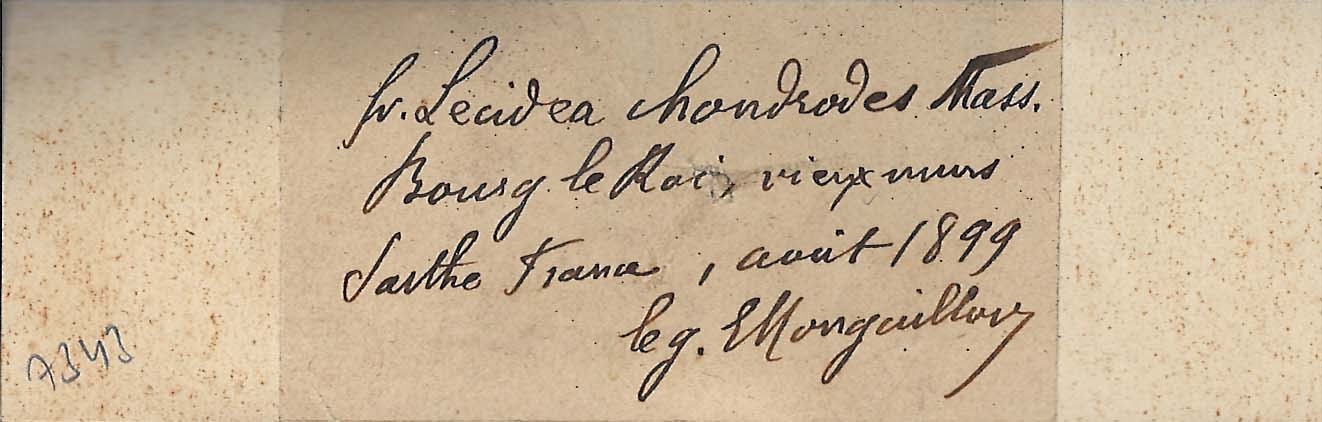 fr. Lecidea chondrodes Mass.
Bourg le Roi, vieux murs
Sarthe France, août 1899
leg. EMonguillon
7343